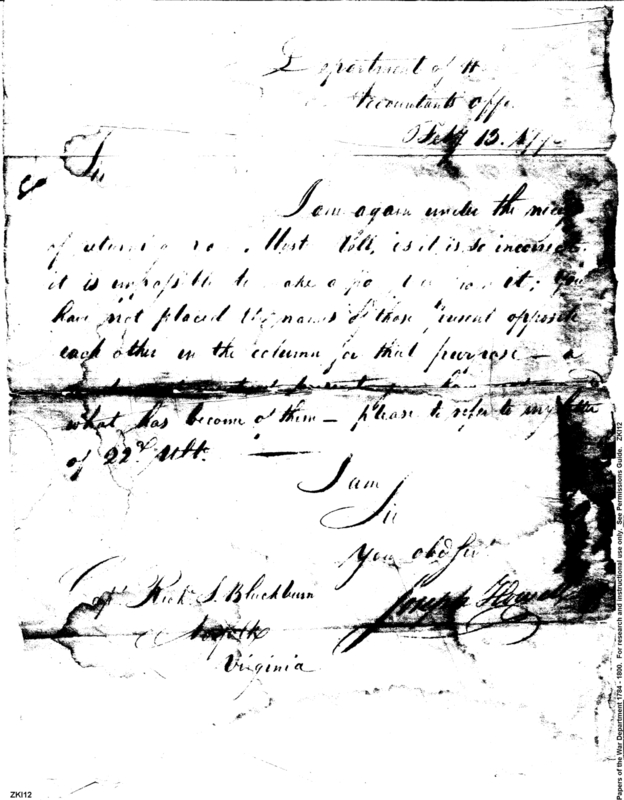 Department of
Accountants offe
Feby 13. 179
Sir
I am again under the
of returning Must Roll, as it is so incorrect
it is impossible to make a it; you
have not placed the names of those present opposite
each other in the column for that purpose — a
what has become of them — please to refer to my letter
of 22d Ult.
I am
Sir
Your obd Servt
Joseph Howell
Capt Rich S. Blackburn
Norfolk
Virginia
Papers of the War Department 1784 - 1800. For research and instructional use only. See Permissions Guide. ZKI12
ZKI12